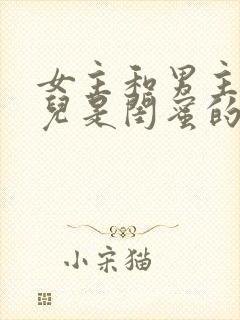 女主和男主
兒是閨蜜的
小宋猫